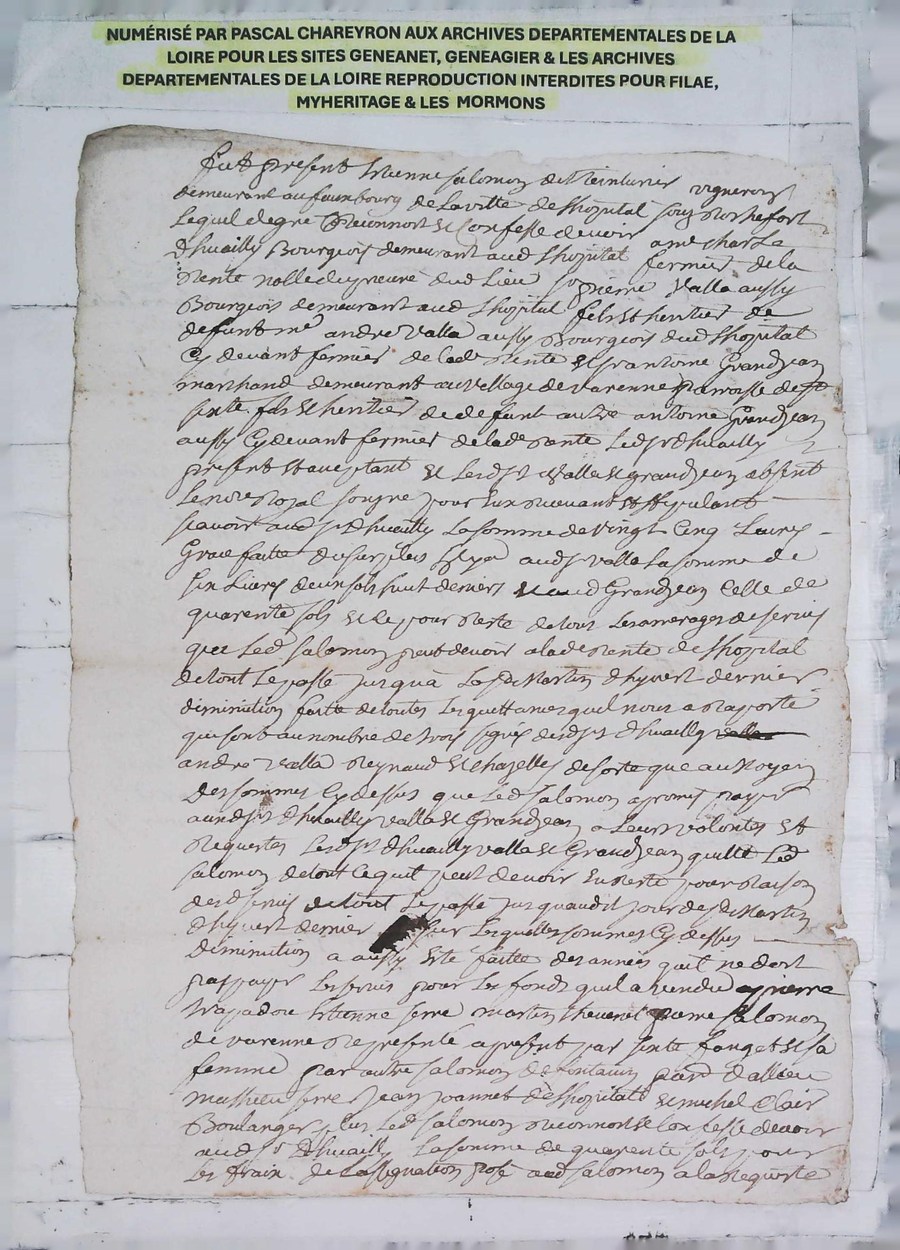 NUMÉRISÉ PAR PASCAL CHAREYRON AUX ARCHIVES DEPARTEMENTALES DE LA
LOIRE POUR LES SITES GENEANET, GENEAGIER & LES ARCHIVES
DEPARTEMENTALES DE LA LOIRE REPRODUCTION INTERDITES POUR FILAE,
MYHERITAGE & LES MORMONS
fut present Etienne salomon vigneron
demeurant au fauxbourg de la ville de lhopital sous Rochefort
Lequel de gre Reconnoit et Confesse devoir a me Charle
Dhuailly Bourgeois demeurant aud lhopital fermier de la
Rente nolle du prieuré dud Lieu sr pierre valla aussy
Bourgeois demeurant aud lhopital fils et heritier de
defunt me andre valla aussy Bourgeois dud lhopital
Cy devant fermier de lade Rente et sr antoine Grandjean
marchand demeurant au village de varenne parroisse de st
sixte fils et heritier de defunt autre antoine Grandjean
aussy Cy devant fermier de lade Rente Led sr dhuailly
present et acceptant et Lesd srs valla et grandjean absent
Le nore Royal soigne pour Eux recevant et stipulant
scavoir aud sr dhuailly La somme de vingt Cinq Livres
Grace faitte du surplus aud sr valla La somme de
six Livres deux sols huit deniers et aud Grandjean Celle de
quarente sols et Ce pour Reste de tous Les arrerages de servis
que Led salomon peut devoir a lade Rente de lhopital
de tout Le passé jusqua La st Martin dhyvert dernier
diminution faite de toutes Les quittances quil nous a Raporté
qui sont au nombre de trois signé desd srs dhuailly
andre valla Reynaud et chazelles de sorte que au Moyen
Des sommes Cy dessus que Led salomon a promis payer
auxd srs dhuailly valla et Grandjean a Leurs volontes et
Requestes Lesd srs dhuailly valla et Grandjean quitte Led
salomon de tout Ce quil peut devoir En Reste pour Raison
desd servis de tout Le passé jusquaudit jour de st Martin
dhyvert dernier sur Lesquelles sommes Cy dessus
diminution a aussy eté faitte des années quil ne doit
pas payer Les servis pour Les fonds quil a vendu a pierre
trapadou Etienne serre martin thevenet salomon
de varenne Represente a present par sixte fouget et sa
femme par autre salomon dallieu
mathieu serre Jean Joannet de lhopital et michel Clair
Boulanger plus Led salomon reconnoit et Confesse devoir
aud sr Dhuailly La somme de quarente sols pour
Les fraix de Lassignation posé aud salomon a la Requeste